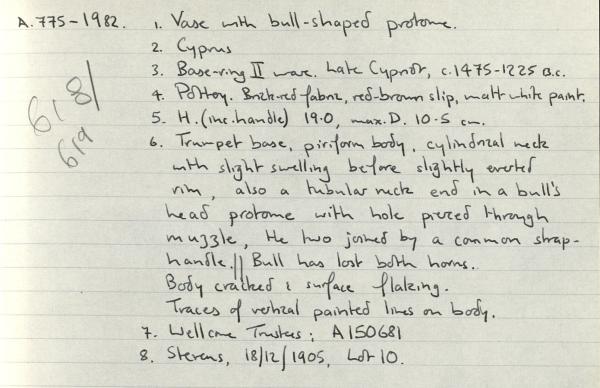 A.775-1982. 1. Vase with bull-shaped protome.
2. Cyprus
3. Base-ring II ware. Late Cypriot, c.1475-1225 B.C.
4. Pottery. Brick-red fabric, red-brown slip, matt white paint.
5. H. (inc. handle) 19.0, max. D. 10.5 cm.
6. Trumpet base, piriform body, cylindrical neck
with slight swelling before slightly everted
rim, also a tubular neck end in a bull's
head protome with hole pierced through
muzzle, the two joined by a common strap-
handle. || Bull has lost both horns.
Body cracked & surface flaking.
Traces of vertical painted lines on body.
7. Wellcome Trustees; A150681
8. Stevens, 18/12/1905, Lot 10.
618/
619